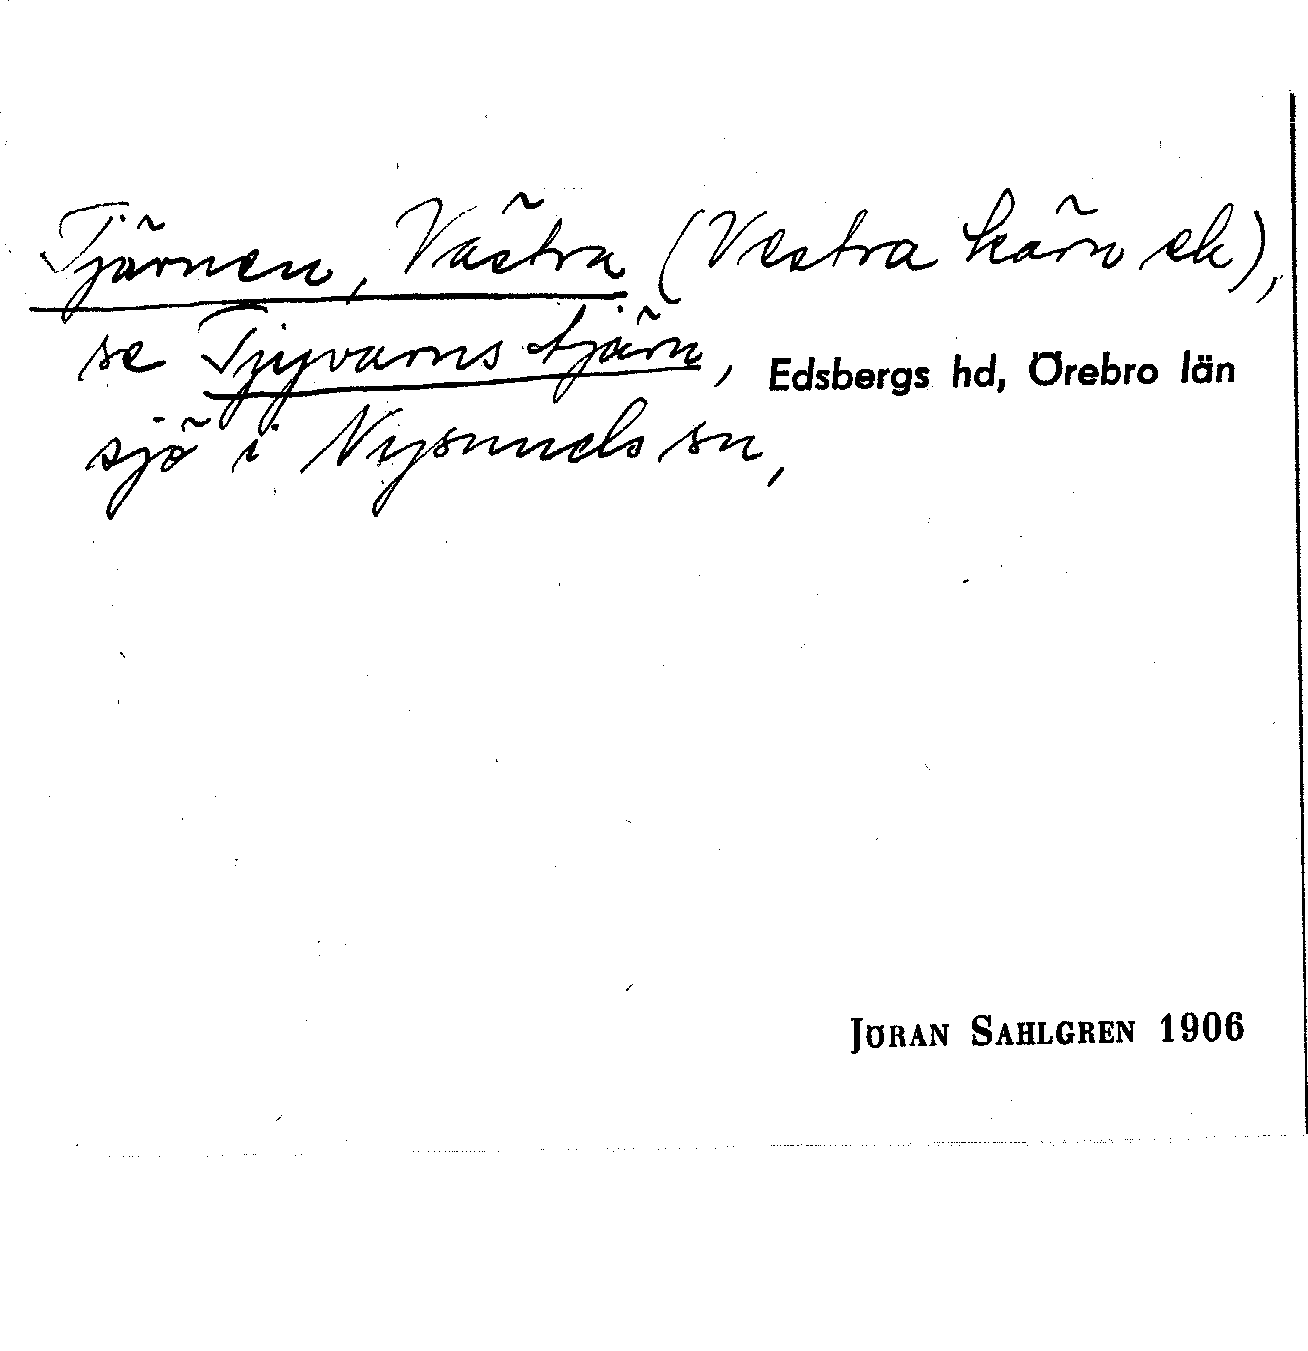 Tjärnen, Västra (Vestra kärn ek),
se Tjyvarnstjärn, Edsbergs hd, Örebro län
sjö i Nysunds sn,
JÖRAN SAHLGREN 1906